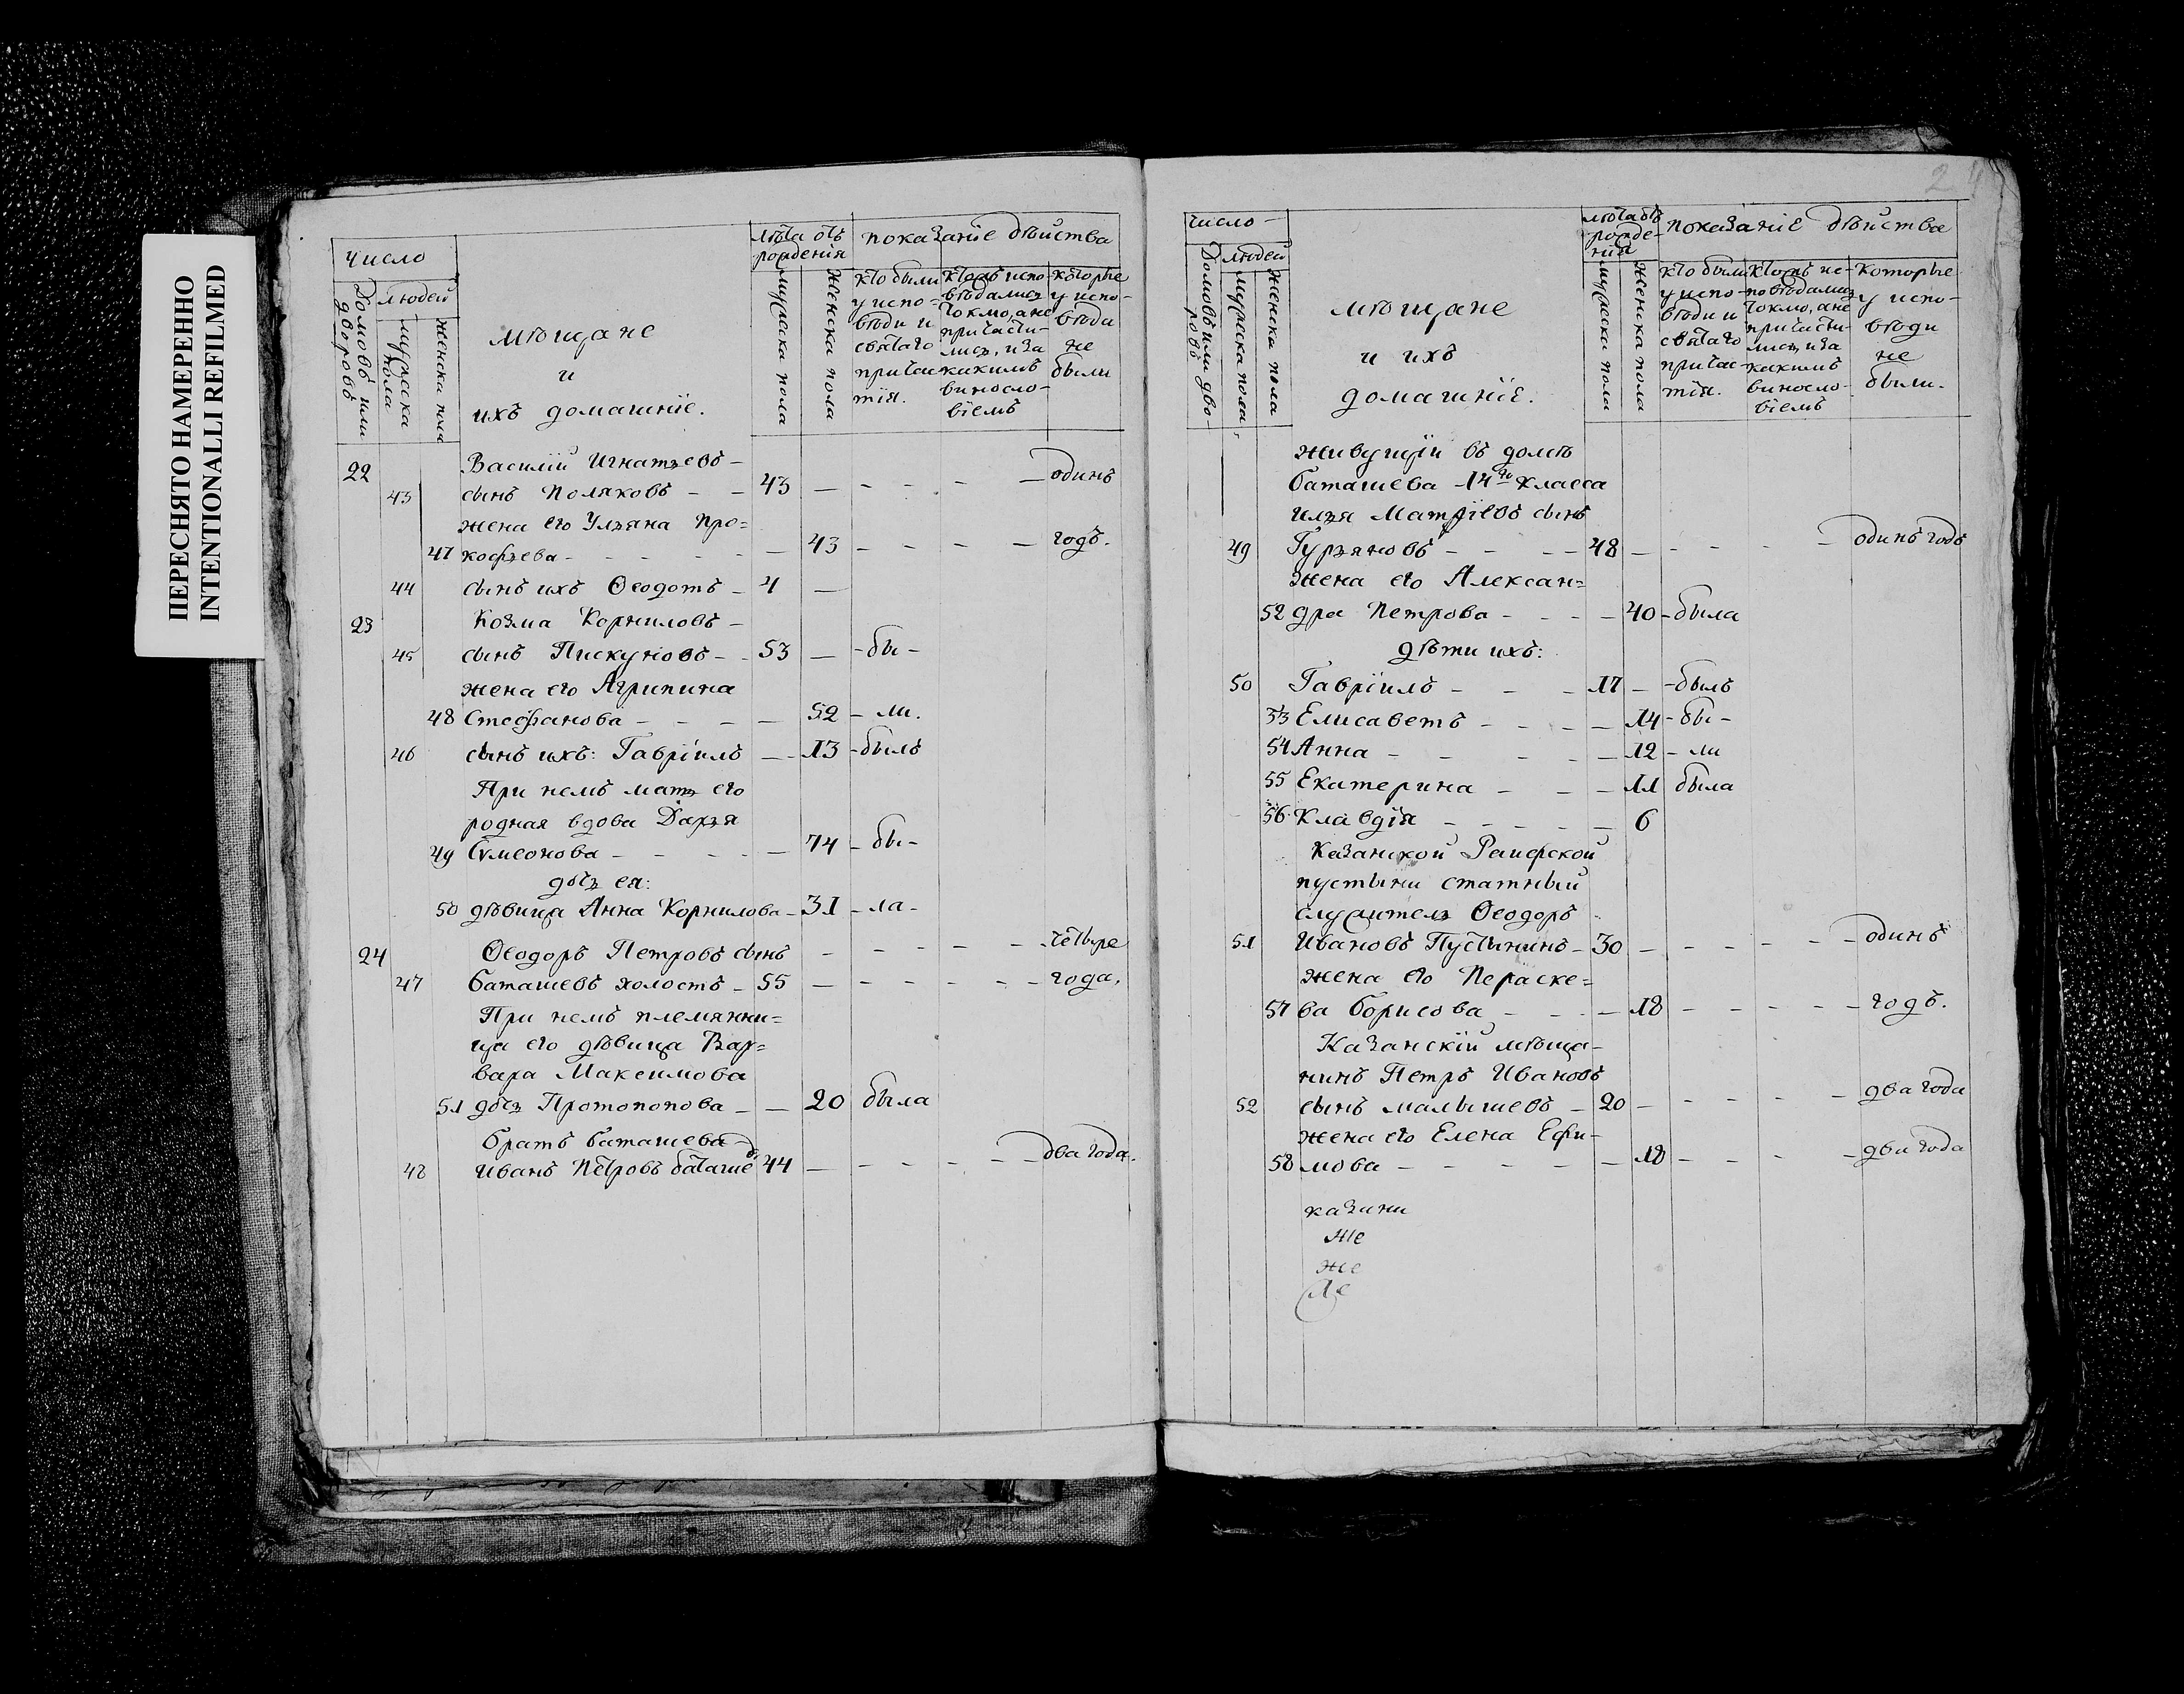 ПЕРЕСНЯТО НАМЕРЕННО
INTENTIONALLI REFILMED
Число
Домовъ или дворовъ
людей
мужеска пола
женска пола
мѣщане
и
ихъ домашніе.
лѣта отъ
рожденія
мужеска пола
женска пола
показаніе дѣйства
кто были
у испо-
вѣди и
святаго
причас
тія.
кто исповѣдались
токмо, а не
причасти-
лись, и за
какимъ
винословіемъ
которые
у испо-
вѣди
не
были
22 Василій Игнатьевъ - одинъ
43 сынъ Поляковъ - - 43 -
жена его Ульяна Про=
47 кофьева - 43 - годъ.
44 сынъ ихъ Ѳеодотъ - 4 -
23 Козма Корниловъ -
45 сынъ Пискуновъ - - 53 - - бы -
жена его Агрипина
48 Стефанова - 52 - ли.
46 сынъ ихъ: Гавріилъ - 13 - былъ
При немъ мать его
родная вдова Дарья
49 Сумеонова - 74 - бы -
дочь ея:
50 дѣвица Анна Корнилова - 31 - ла -
24 Ѳеодоръ Петровъ сынъ - четыре
47 Баташевъ холостъ - 55 - года,
При немъ племянни=
ца его дѣвица Вар=
вара Максимова
51 дочь Протопопова - - 20 была
братъ Баташева -
48 Иванъ Петровъ Баташевъ 44 - два года.
2
число -
Домовъ или дворовъ
людей
мужеска пола
женска пола
мѣщане
и ихъ
домашніе.
лѣта отъ
рожде-
нія
мужеска пола
женска пола
показаніе дѣйства
кто были
у испо-
вѣди и
святаго
причас-
тія.
кто исповѣдались
токмо, а не
причасти-
лись, и за
какимъ
винословіемъ
которые
у испо-
вѣди
не
были.
живущій въ домѣ
Баташева 14го класса
Илья Матфіевъ сынъ
49 Гурьяновъ - 48 - одинъ годъ
жена его Алексан=
52 дра Петрова - 40 - была
дѣти ихъ:
50 Гавріилъ - 17 - - былъ
53 Елисаветъ - 14 - бы -
54 Анна - 12 - ли
55 Екатерина - 11 была
56 Клавдія - 6
Казанской Раифской
пустыни статный
служитель Ѳеодоръ
51 Ивановъ Пустынинъ - 30 - одинъ
жена его Параске=
57 ва Борисова - 18 - годъ.
Казанскій мѣща-
нинъ Петръ Ивановъ
52 сынъ Малышевъ - 20 - два года
жена его Елена Ефи-
58 мова - 18 - два года
казани
же
же